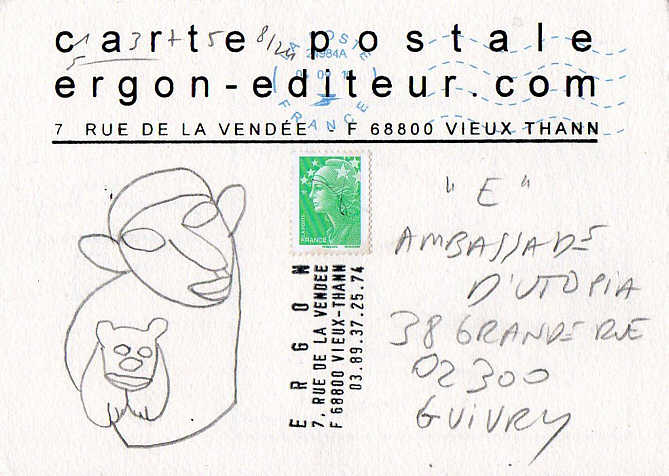 carte postale
ergon-editeur.com
7 RUE DE LA VENDÉE - F 68800 VIEUX THANN
5 3 + 5 8/24
LA POSTE
21984A
FRANCE
FRANCE
ERGON
7, RUE DE LA VENDÉE
F 68800 VIEUX-THANN
03.89.37.25.74
"E"
AMBASSADE
D'UTOPIA
38 GRANDE RUE
02300
GUIVRY